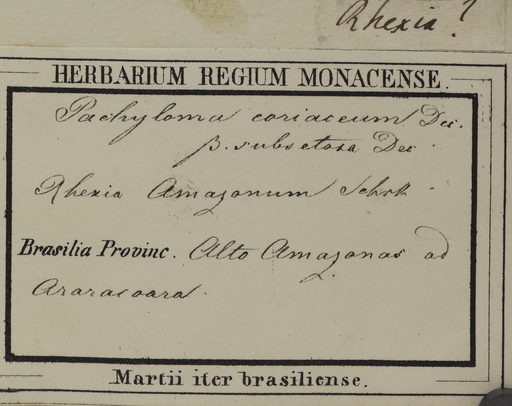 Rhexia?
HERBARIUM REGIUM MONACENSE.
Pachyloma coriaceum Dec.
β. subsetosa Dec
Rhexia Amazonum Schrk
Brasilia Provinc. Alto Amazonas ad
Araracoara.
Martii iter brasiliense.